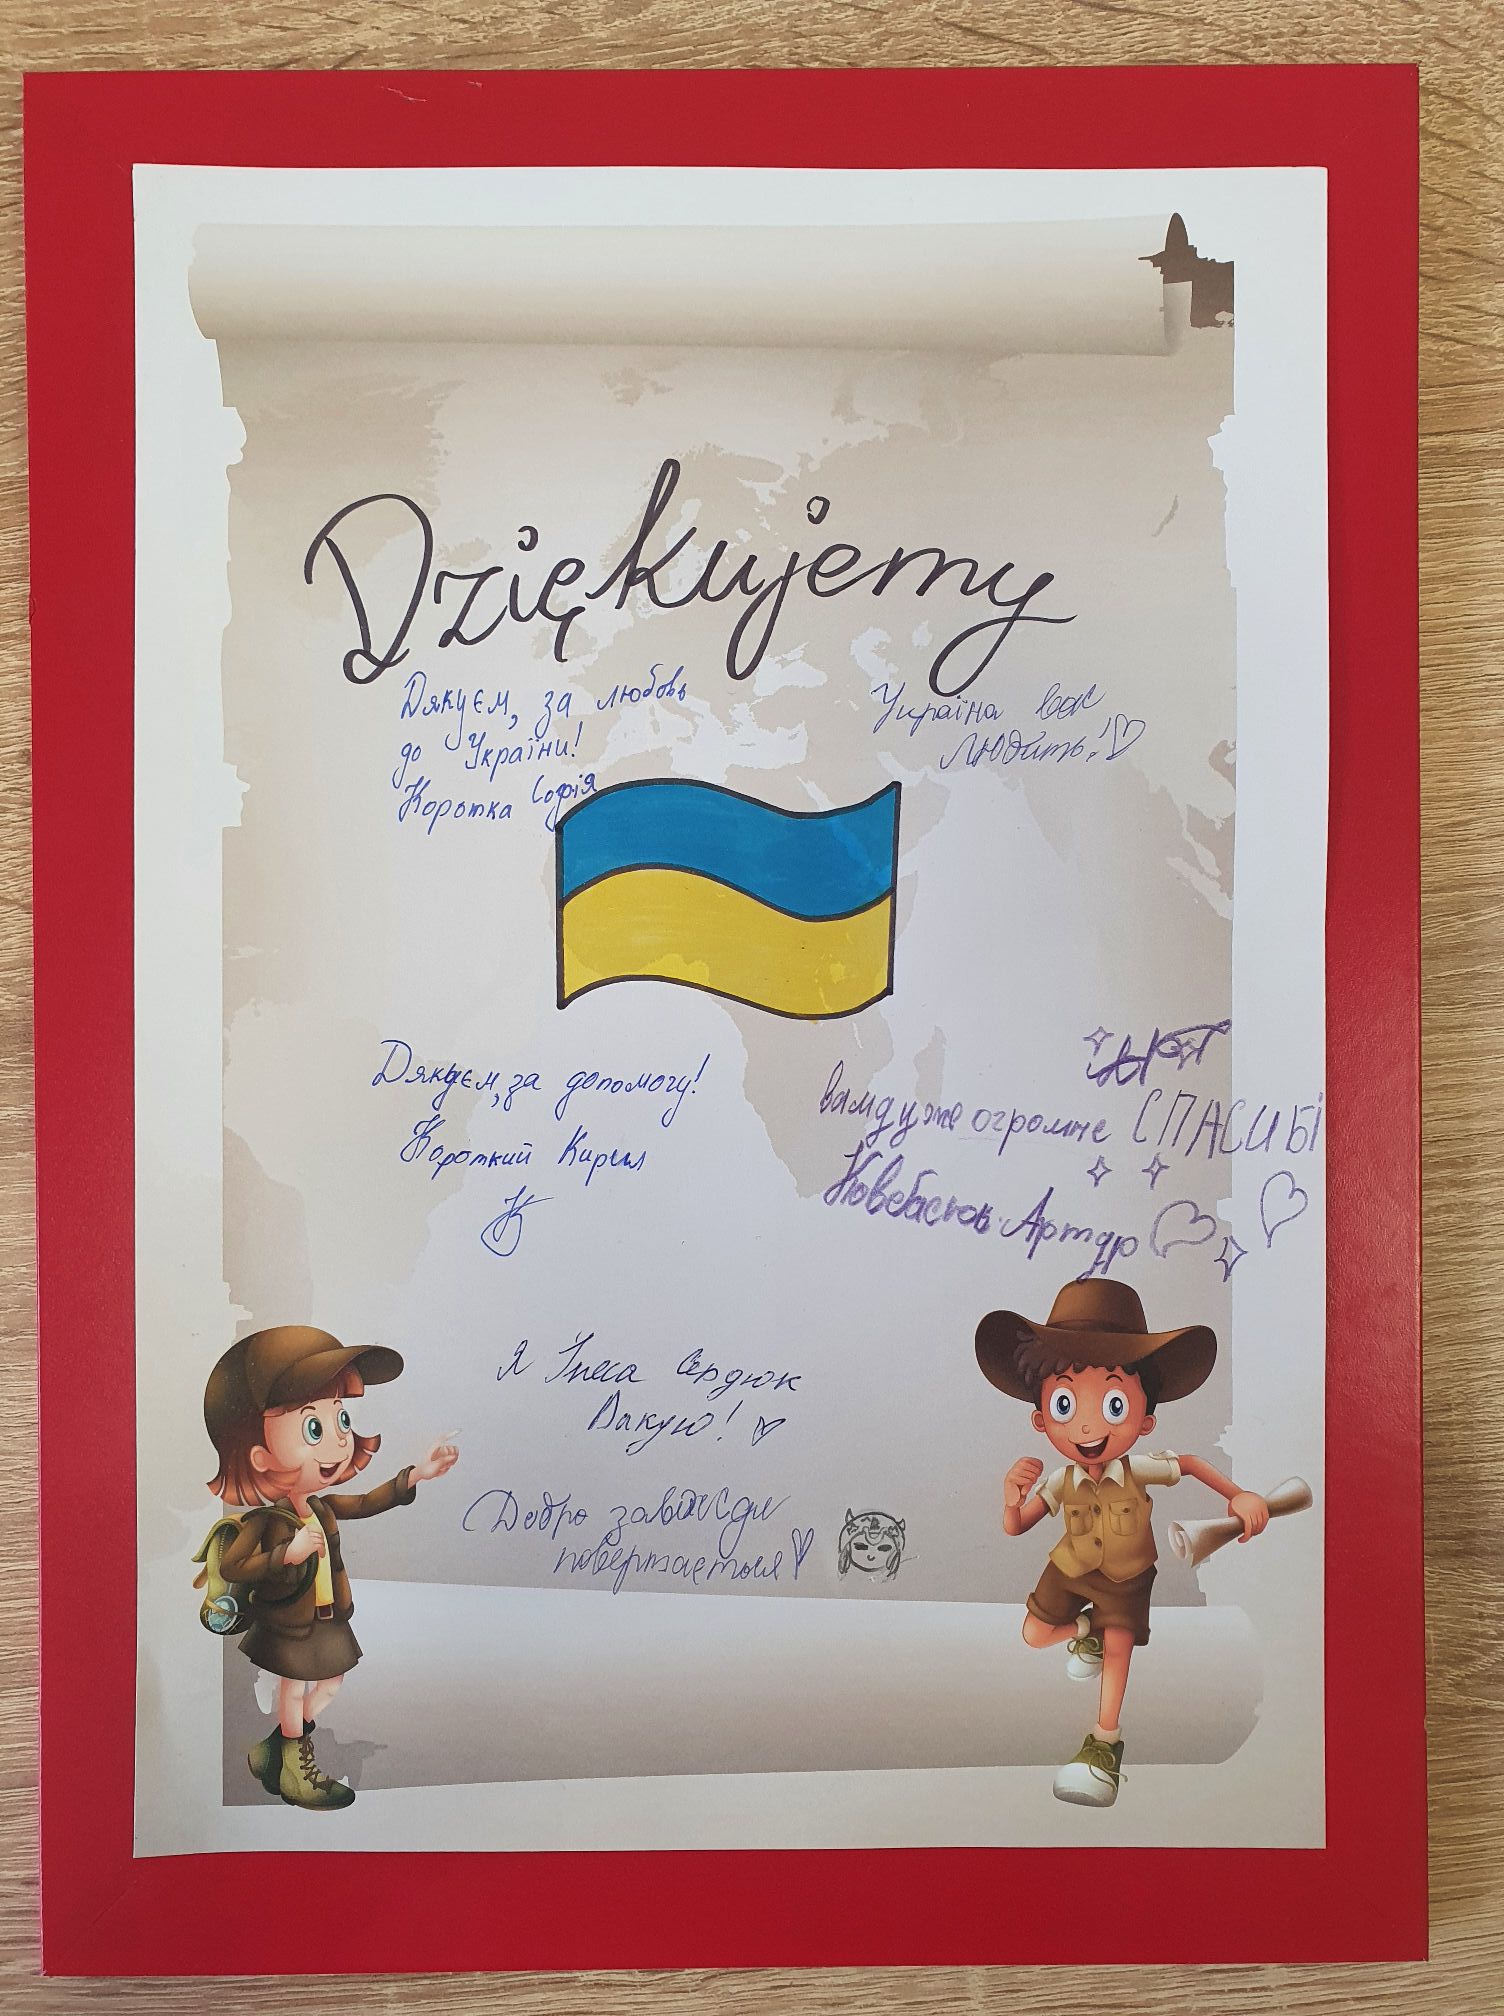 Dziękujemy
Дякуєм, за любовь
до України!
Коротка Софія
Україна вас
любить!
Дякуєм, за допомогу!
Короткий Кирил
Арт
вам дуже огромне СПАСИБІ
Артур
Я Інеса Сердюк
Дякую!
Добро завжди
повертається